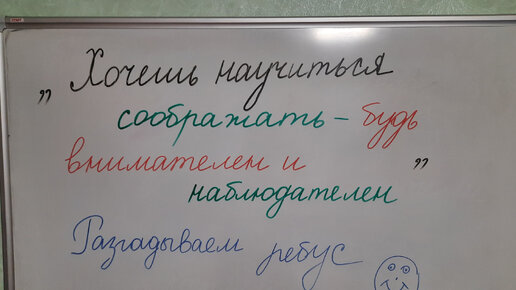 „Хочешь научиться
соображать – будь
внимателен и
наблюдателен”
Разгадываем ребус